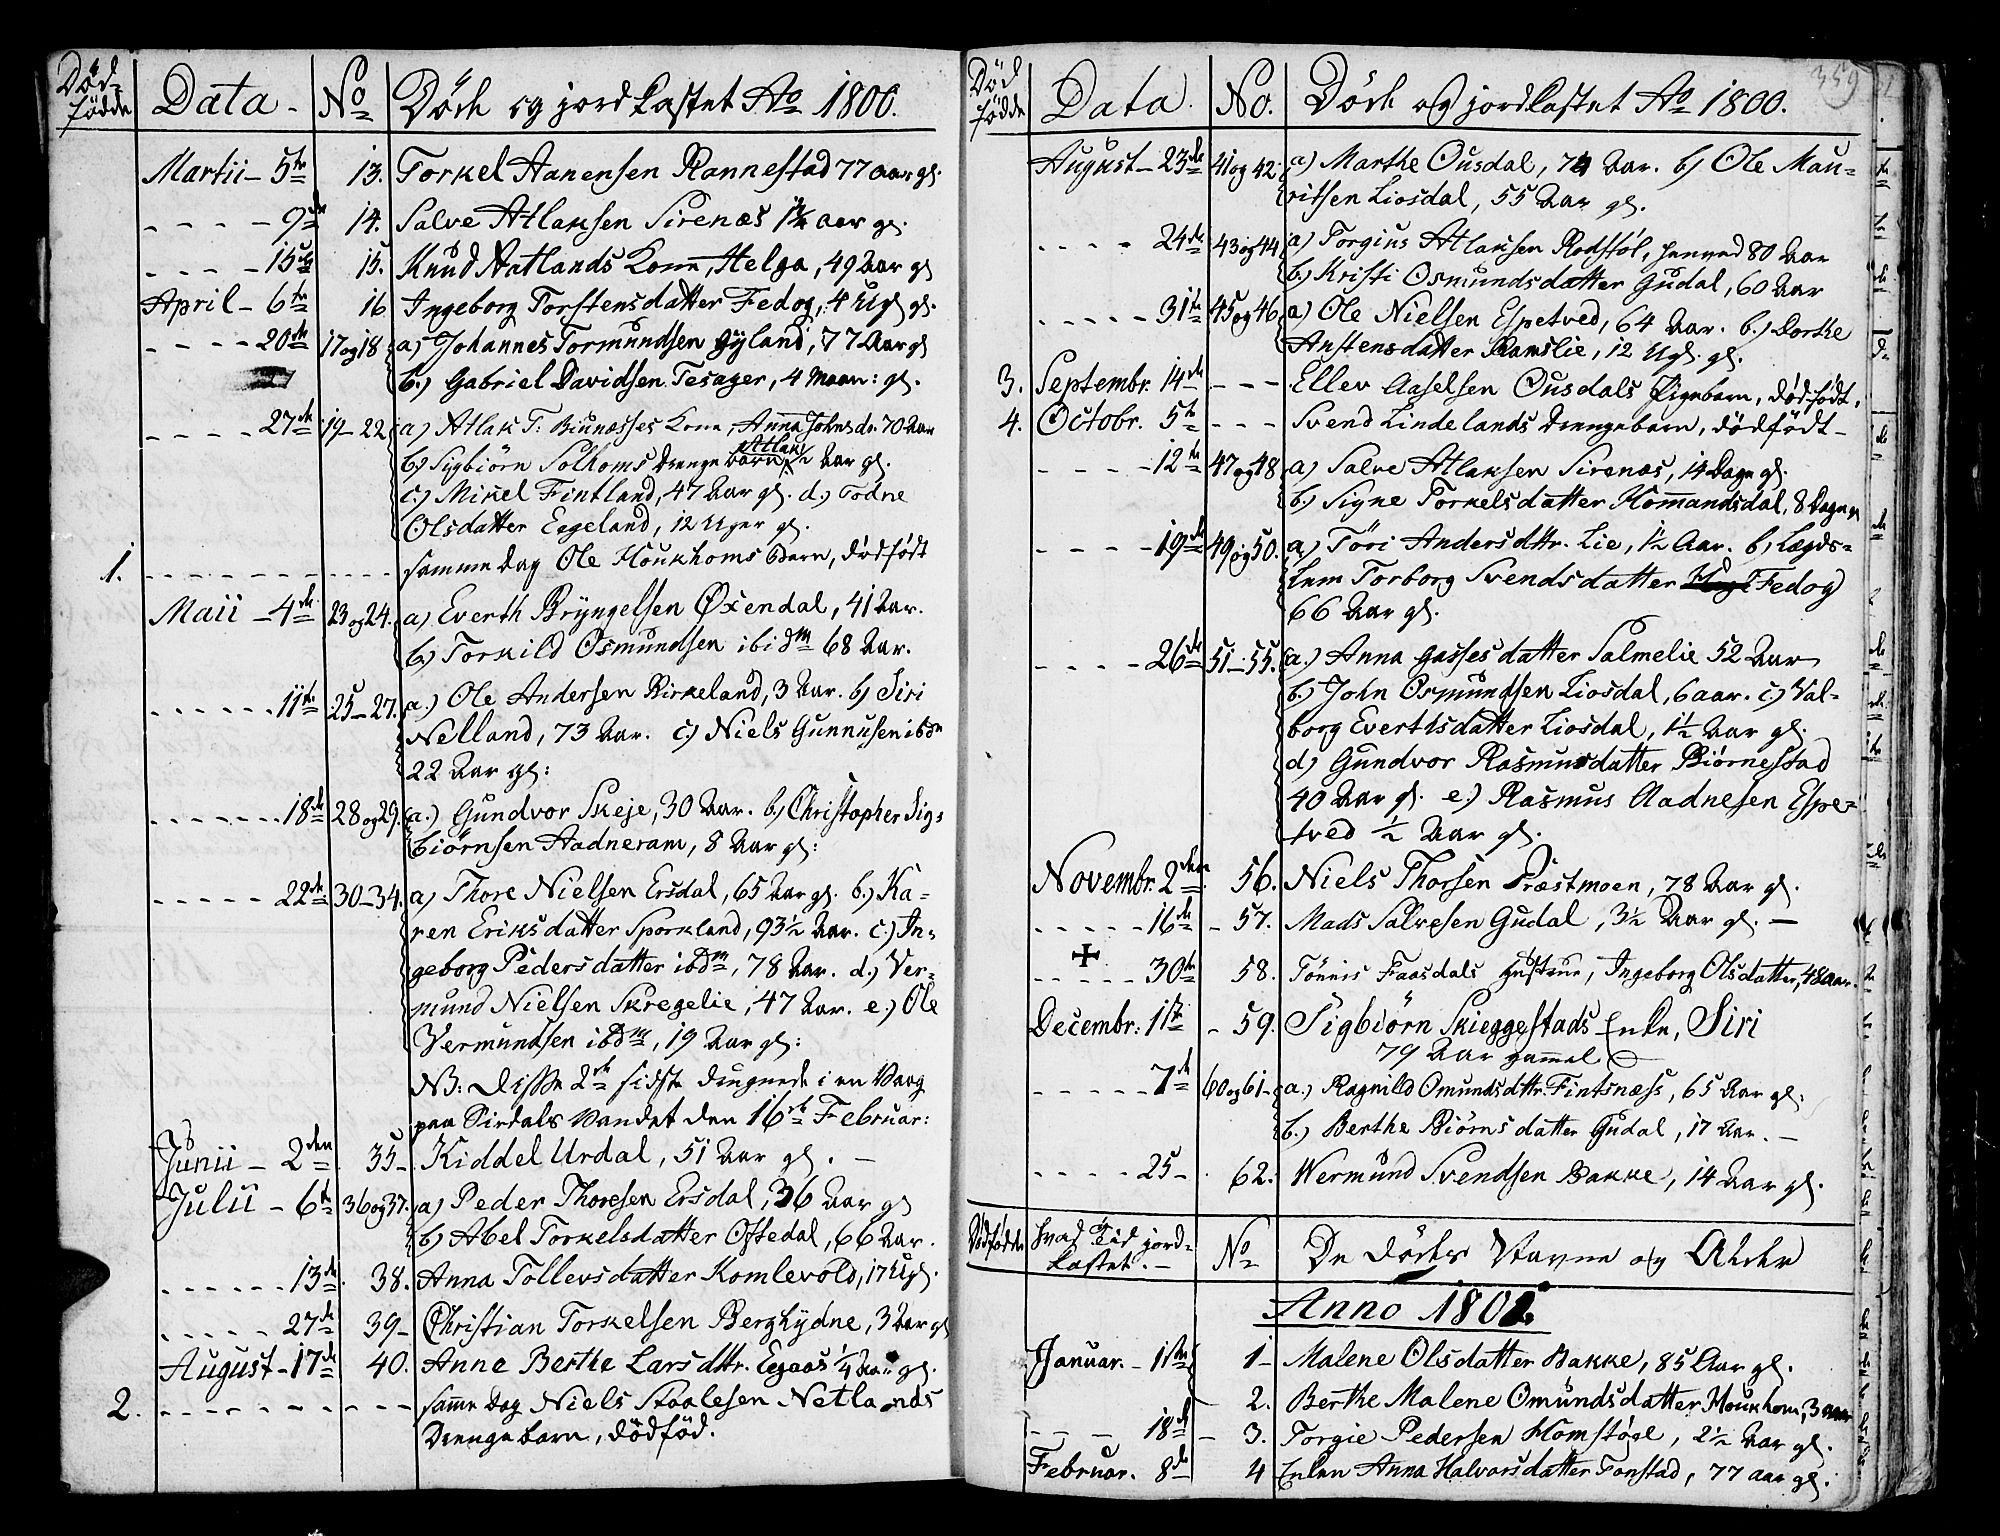 Død-
fødde Data - No Døde og jordkastet Ao 1800.
Martii - 5te 13. Torkel Aanensen Rannestad 77 aar gl.
- - - - 9de 14. Salve Atlaksen Sirenæs aar gl.
- - - - 15de 15. Knud Hatlands Kone, Helga, 49 Aar gl
April - 6te 16 Ingeborg Torstensdatter Fedog, 4 Ug gl.
- - - - 20de 17og18 a) Johannes Tormundsen Gyland, 77 Aar gl
b.) Gabriel Davidsen Tesager, 4 Maan: gl.
- - - - 27de 19-22 a) Atlak T: Kone, Anna Johnsdr. 70 Aar
b) Sygbiörn Solhoms Drengebarn Atlak ½ Aar gl.
c.) Mikel Fintland, 47 Aar gl. d.) Todne
Olsdatter Eegeland, 12 Uger gl.
1. - - - - - - - - - - samme dag Ole Houkhoms Barn, dödfödt
Maii - 4de 23og24. a) Everth Bryngelsen Øxendal, 41 Aar.
b) Torkild Osmundsen ibidm 68 Aar.
- - - - - 11te 25-27. a.) Ole Andersen Birkeland, 3 Aar. b) Siri
Nelland, 73 Aar. c) Niels Gunnusen ibdm
22 Aar gl:
- - - - - 18de 28og29. a.) Gundvor Skeje, 30 Aar. b.) Christopher Sig-
biörnsen Aadneram, 8 Aar gl:
- - - - - 22de 30-34. a) Thore Nielsen Ersdal, 65 Aar gl. b.) Ka-
ren Eriksdatter Sporkland, 93½ Aar. c.) In-
geborg Pedersdatter ibdm, 78 Aar. d.) Ver-
mund Nielsen Skregelie, 47 Aar. e.) Ole
Vermundsen ibdm, 19 Aar gl:
NB: Disse 2de sidste druknede i en Vaag
paa Sirdals Vandet den 16de Februar:
Junii - 2den 35- Kiddel Urdal, 51 Aar gl. -
Julii - 6te 36og37. a) Peder Thoresen Ersdal, 36 Aar gl
b) Abel Torkelsdatter Oftedal, 66 Aar.
- - - - - 13de 38. Anna Tollevsdatter Komlevold, 17 Ug.
- - - - - 27de 39- Christian Torkelsen Berghydne, 3 Aar gl
August - 17de 40. Anne Berthe Larsdttr. Egaas ¼ Aar gl.
2. - - - - - - - - - - samme Dag Niels Staalesen Netlands
Drengebarn, dödfød.
359
Død
fødde Data. No. Døde og jordkastet Ao 1800.
August - 23de 41og42. a) Marthe Ousdal, 74 Aar. b) Ole Mau-
ritsen Liosdal, 55 Aar gl.
- - - - 24de 43og44 a) Torgius Atlaksen Rodstöl, henved 80 Aar
b.) Kristi Osmundsdatter Gudal, 60 Aar
- - - - - 31te 45og46 a) Ole Nielsen Espetved, 64 Aar. b.) Dorthe
Anstensdatter Ramslie, 12 Ug. gl.
3. Septembr. 14de - - - Ellev Aaselsen Ousdals Pigebarn, dödfödt.
4. Octobr. 5te - - - Svend Lindelands Drengebarn, dödfödt -
- - - - 12te 47og48 a) Salve Atlaksen Sirenæs, 14 Dage gl.
b) Signe Torkelsdatter Kommandsdal, 8 Dage gl
- - - - 19de 49og50. a.) Töri Andersdttr. Lie, 1½ Aar. b) Lægds-
Lem Torborg Svendsdatter Fedog
66 Aar gl.
- - - - 26de 51-55. a.) Anna Gassesdatter Salmelie 52 Aar
b.) John Osmundsen Liosdal, 6 aar. c.) Val-
borg Everthsdatter Liosdal, 1½ Aar gl.
d) Gundvor Rasmusdatter Biörnestad
40 Aar gl. e.) Rasmus Aadnesen Espe-
tved ½ Aar gl.
Novembr. 2den 56. Niels Thorsen Præstmoen, 78 Aar gl.
- - - - - 16de - 57. Mads Salvesen Gudal, 3½ Aar gl. -
- - - - 30te 58. Tönnes Faasdals Hustrue, Ingeborg Olsdatter, 48 aar.
Decembr: 1ste - 59. Sigbiörn Skieggestads Enke, Siri
79 Aar gammel
- - - - - 7de 60og61- a.) Ragnild Omundsdttr. Fintsnæss, 65 Aar gl.
b.) Berthe Biörnsdatter Gudal, 17 Aar. -
- - - - 25- 62. Wermund Svendsen Bakke, 14 Aar gl.
Dödfödde hvad Tid jord-
kastet. - No De Dödes Navne og Alder
Anno 1801
Januar. - 11te 1- Malene Olsdatter Bakke, 85 Aar gl.
2. Berthe Malene Omundsdatter Houkhom, 3 aar
- - - 18de - 3. Torgie Pedersen Homstögl, 2½ Aar gl.
Februar. 8de 4 Enken Anna Halvorsdatter Tonstad, 77 aar gl.